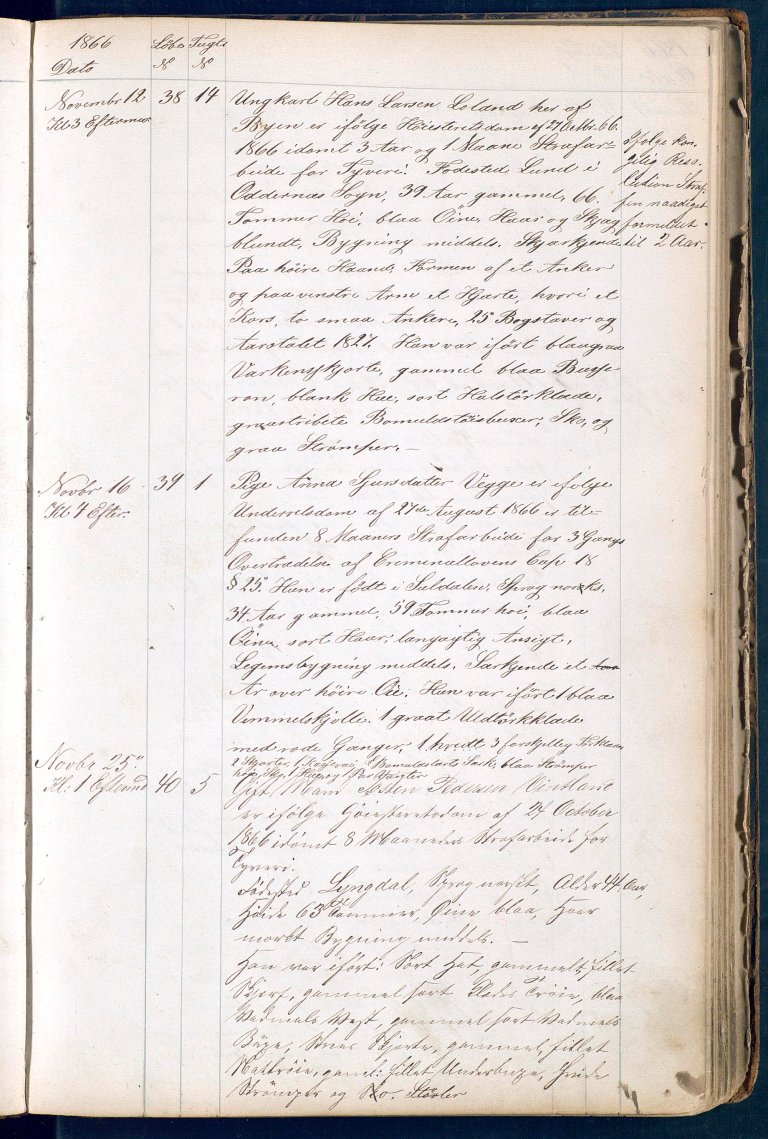 1866 Löbe Tugt
Dato N N
Novembr 12 38 14 Ungkarl Hans Larsen Loland her af
Kl 3 Efterm Byen er ifölge Höiesteretsdom af 27 Octbr 66.
1866 idömt 3 Aar og 1 Maane Strafar-
beide for Tyveri. Fodested Lund i
Oddernæs Sogn, 39 Aar gammel, 66.
Tommer Höi, blaa Öine, Haar og Skjæg
blundt, Bygning middels. Skjærkjende
Paa höire Haand, Formen af et Anker
og paa venstre Arm et Hjærte, hvori et
Kors, to smaa Ankere, 25 Bogstaver og
Aarstalet 1827. Han var ifört blaagraa
Varkenskjorte, gammel blaa Buse-
ron, blank Hue, sort Halstörklæde,
graastribete Bomuldstöisbuxer, Sko, og
graa Strömper. —
Ifölge kon-
gelig Reso-
lution Straf-
fen naadigst
formeldet
til 2 Aar.
Novbr 16 39 1 Pige Anna Sjursdatter Vegge er ifölge
Kl 7 Efter. Underretsdom af 27de August 1866 er til-
funden 8 Maaners Strafarbeide for 3 Gangs
Overtrædelse af Creminallovens Cap 18
§ 25. Hun er födt i Suldalen, Sprog norsk,
34 Aar gammel, 59 Tommer höi, blaa
Öine, sort Haar, langagtig Ansigt,
Legemsbygning middels. Særkjende et
Ar over höire Öie. Hun var ifört 1 blaa
Vimmelskjolle, 1 graat Udtörkklæde
med röde Ganger, 1 hvidt 3 forskjellig
2 Skjorter, Bomuldstöis Særk, blaa Strömper
1 Par Vanter
Novbr 25
Kl: 1 Efterm 40 5 Gift Mand Peder
er ifölge Höiesteretsdom af 24 October
1866 idömt 8 Maaneders Strafarbeide for
Tyveri.
Födested Lyngdal, Sprog norsk, Alder 44 Aar,
Höide 63 Tommer, Öine blaa, Haar
mørkt Bygning middels. —
Han var ifört: Sort Hat, gammelt fillet
Skjerf, gammel sort Klædes Tröie, blaa
Vadmels Vest, gammel sort Vadmels
Buxe, Skjorte, gammel, fillet
Nattröie, gaml: fillet Underbuxe, hvide
Strömper og Sko. Stövler